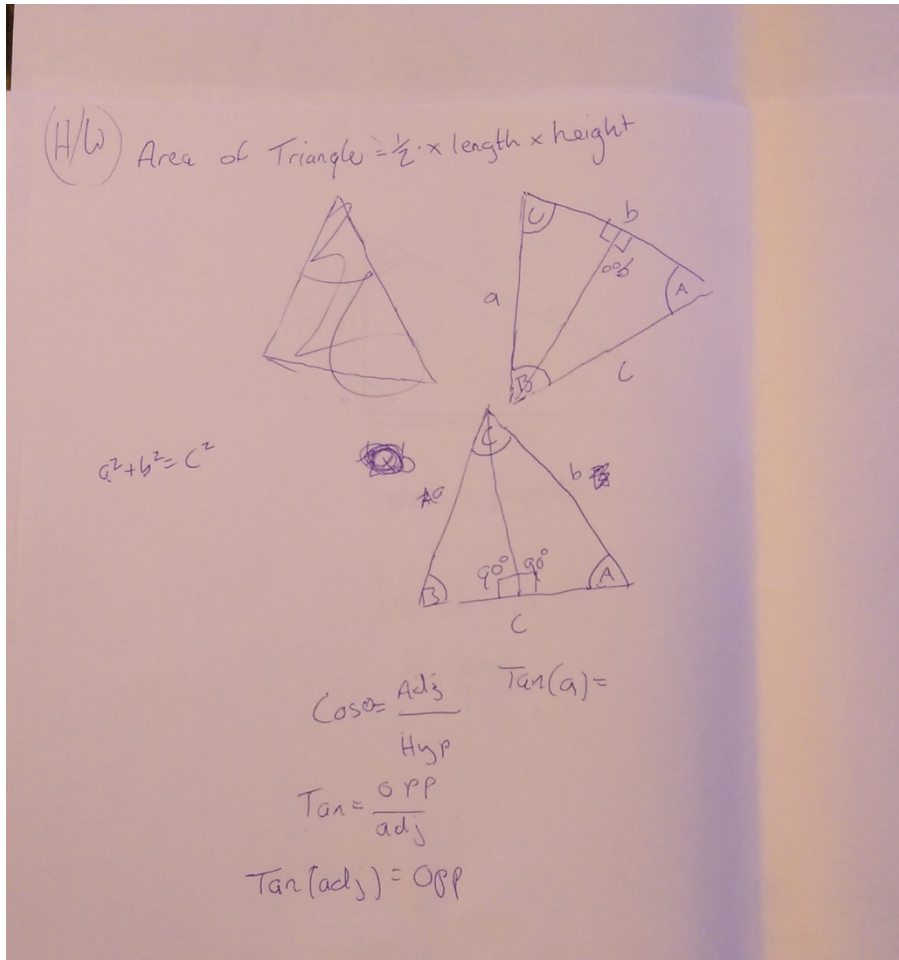 H/W Area of Triangle = ½ · x length x height
C b
a
A
B C
a² + b² = c²
C
a b
90° 90°
B A
C
Cosθ = Adj / Hyp
Tan(a) =
Tan = opp / adj
Tan(adj) = Opp